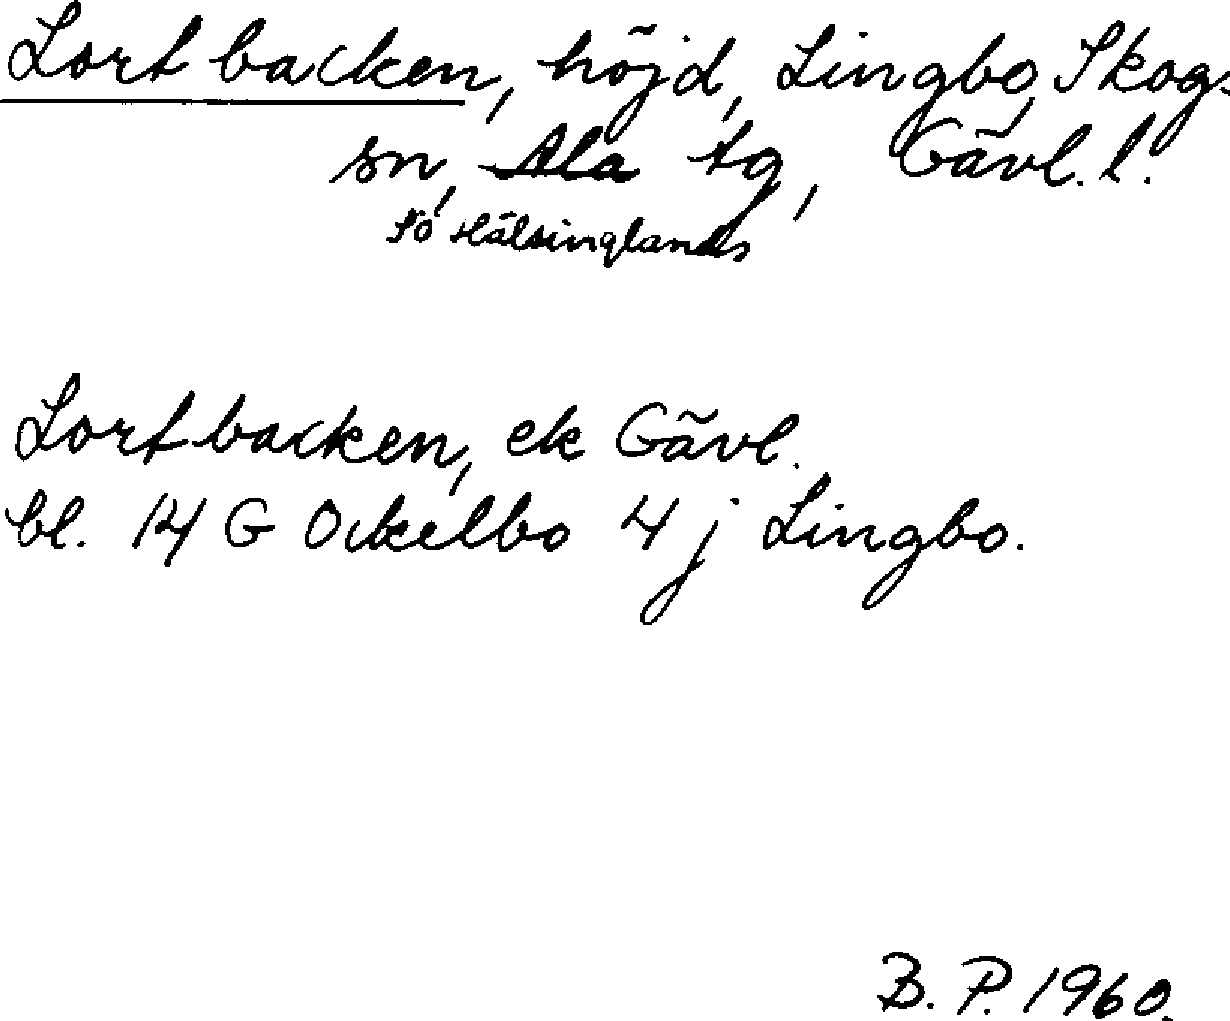 Lortbacken, höjd, Lingbo, Skogs
sn, Ala tg, Gävl. l.
Sö Hälsinglands
Lortbacken, ek Gävl.
bl. 14 G Ockelbo 4 j Lingbo.
B. P. 1960.